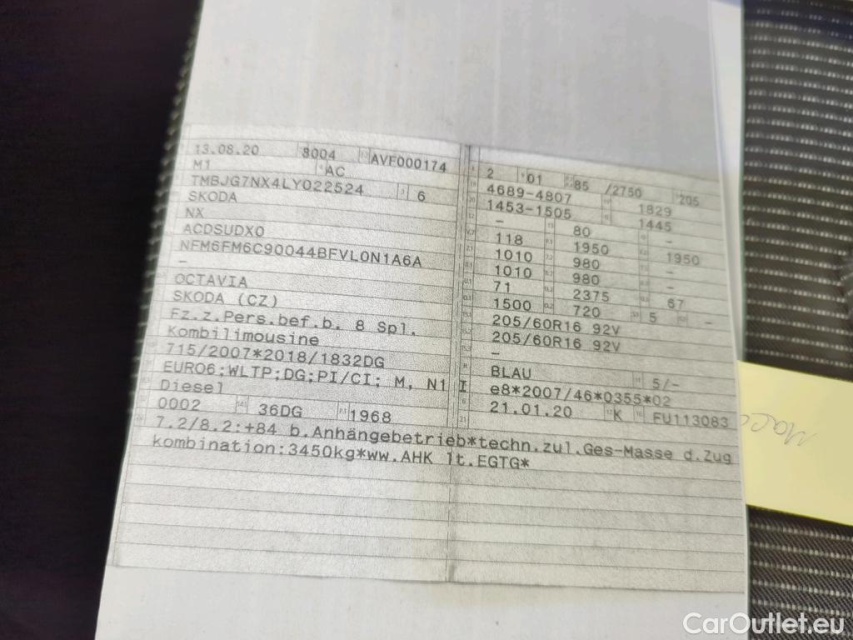 13.08.20 8004 AVF000174
M1 AC
TMBJG7NX4LY022524 6
SKODA
NX
ACDSUDX0
NFM6FM6C90044BFVL0N1A6A
-
OCTAVIA
SKODA (CZ)
Fz.z.Pers.bef.b. 8 Spl.
Kombilimousine
715/2007*2018/1832DG
EURO6;WLTP;DG;PI/CI; M, N1 I
Diesel
0002 36DG 1968
2 01 85 /2750 205
4689-4807 1829
1453-1505 1445
- 80 -
118 1950 1950
1010 980 -
1010 980 -
71 2375 67
1500 720 5 -
205/60R16 92V
205/60R16 92V
-
BLAU 5/-
e8*2007/46*0355*02
21.01.20 K FU113083
7.2/8.2:+84 b.Anhängebetrieb*techn.zul.Ges-Masse d.Zug
kombination:3450kg*ww.AHK lt.EGTG*
CarOutlet.eu